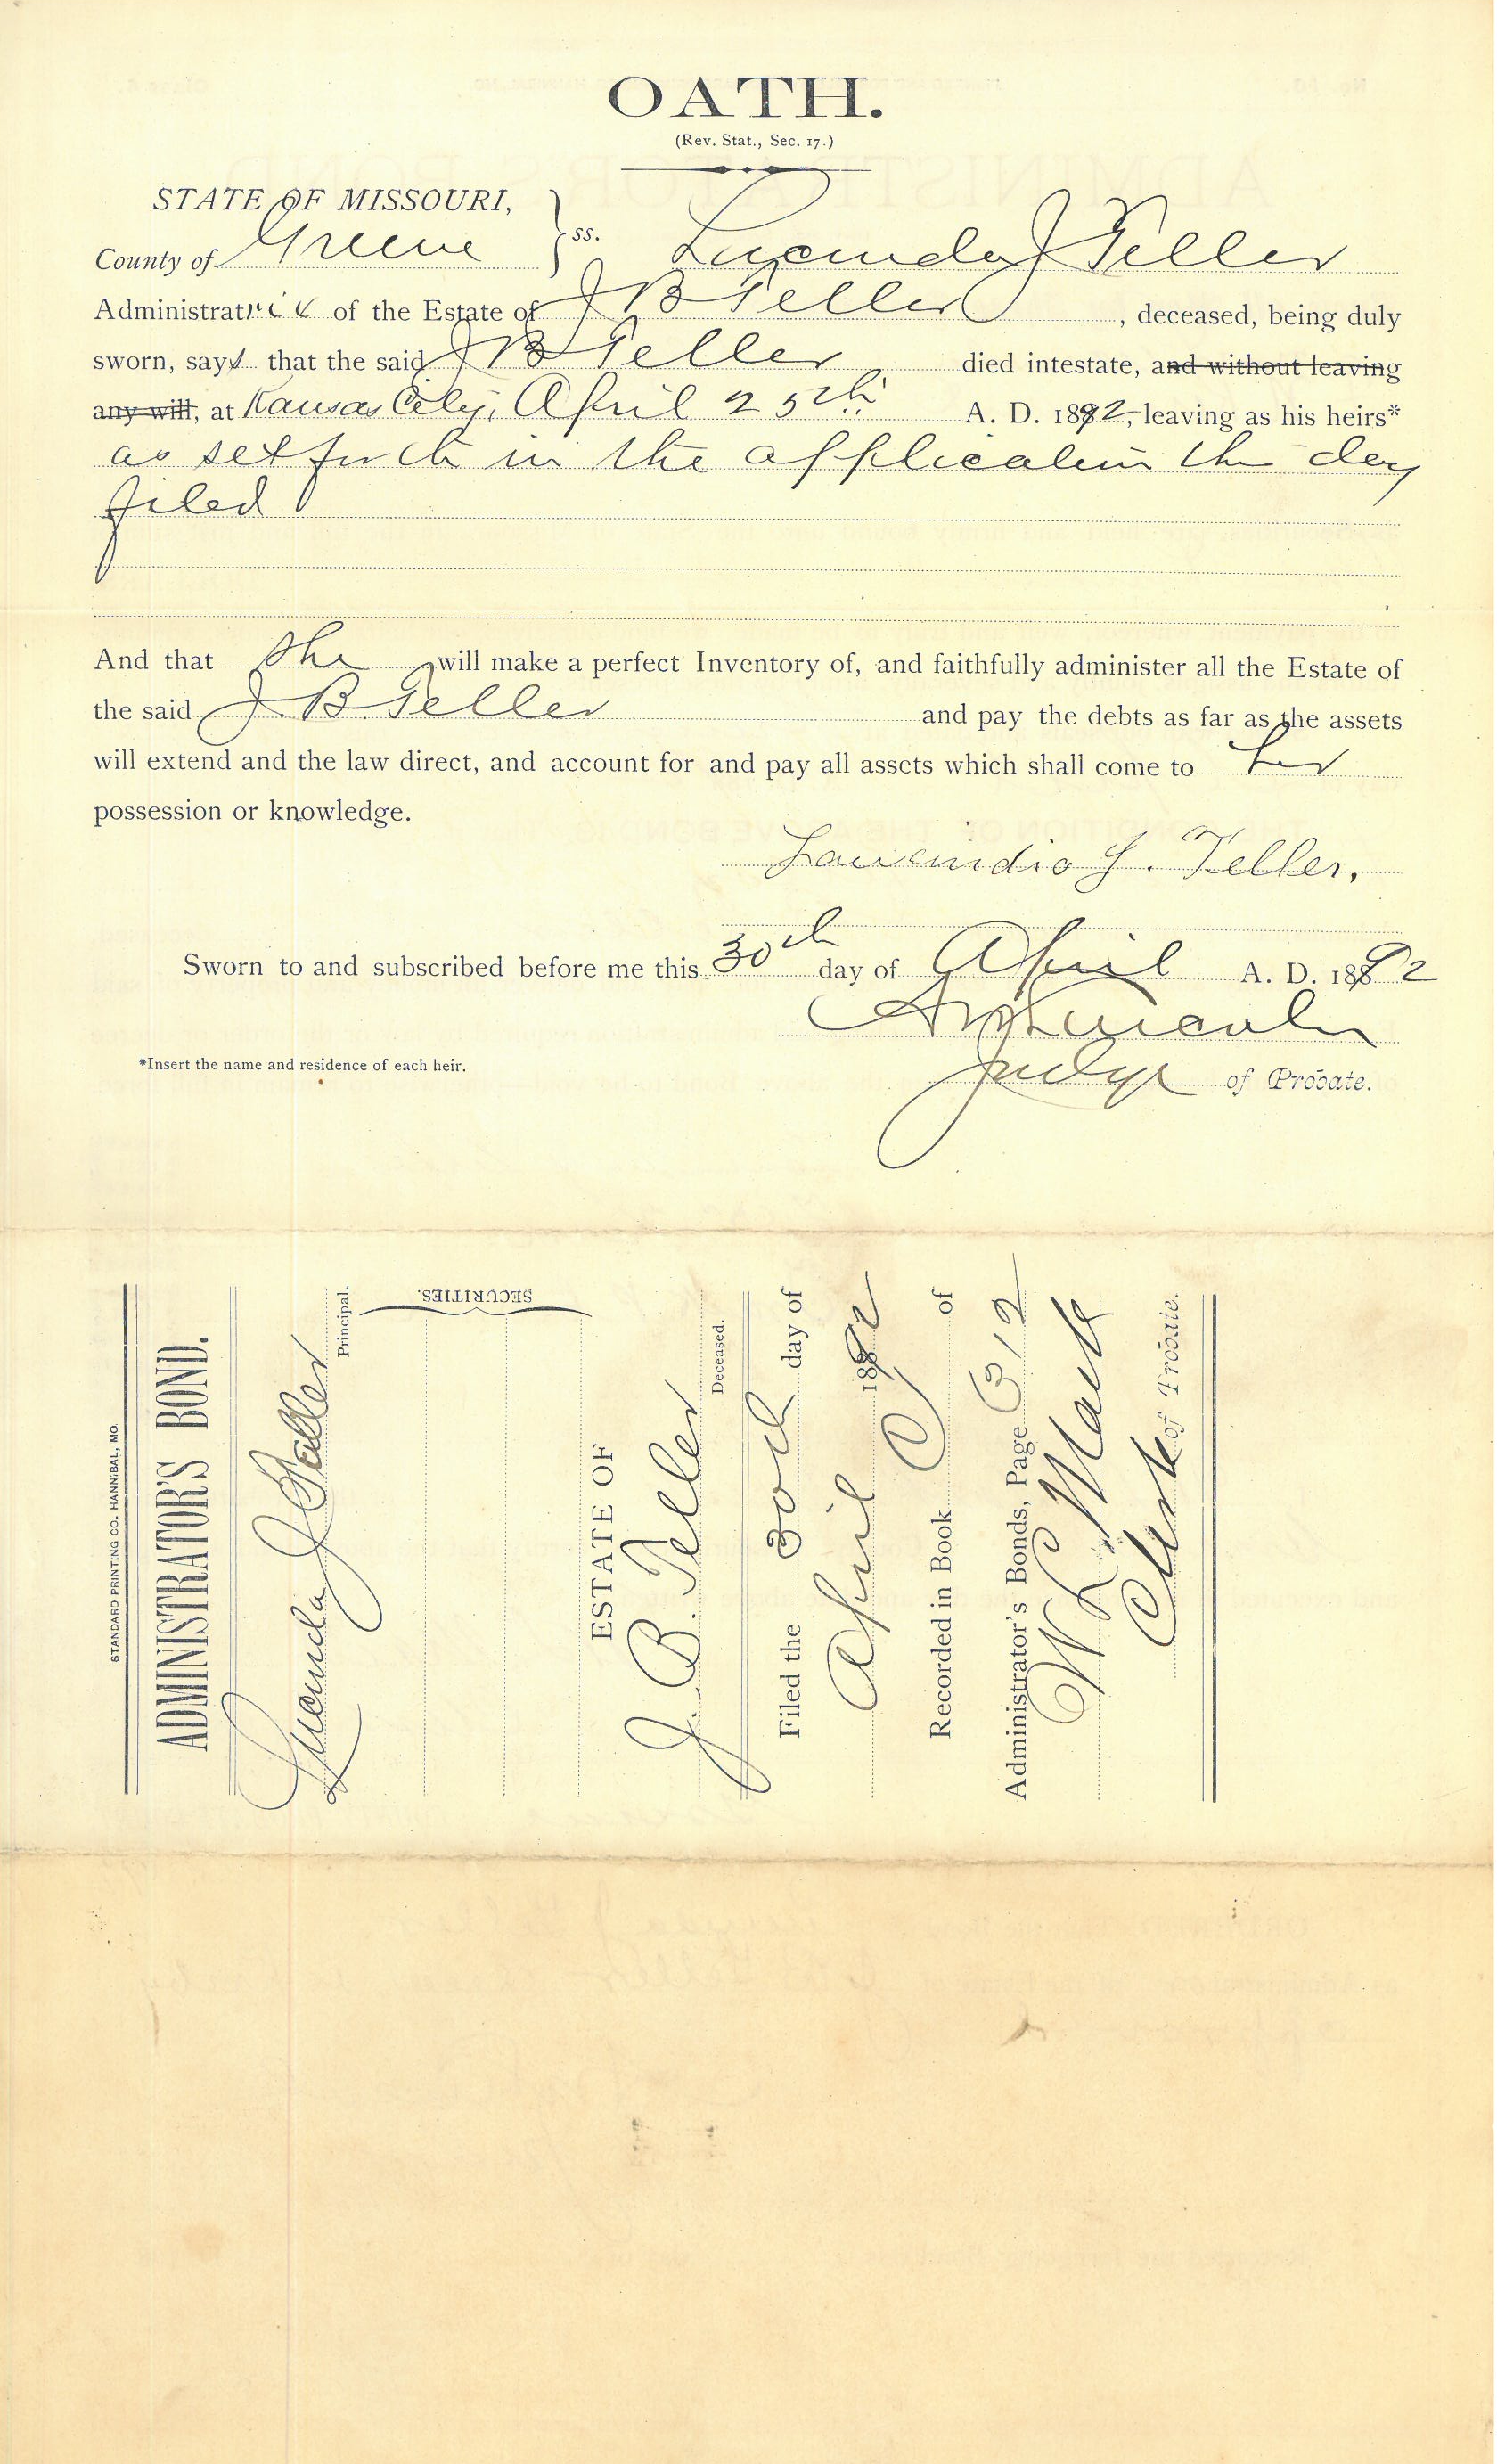 OATH.
(Rev. Stat., Sec. 17.)
STATE OF MISSOURI,
County of Greene } ss. Lucinda J Teller
Administratrix of the Estate of J B Teller, deceased, being duly
sworn, says that the said J B Teller died intestate, and without leaving
any will, at Kansas City, April 25th A. D. 1892, leaving as his heirs*
as set forth in the application this day
filed
And that She will make a perfect Inventory of, and faithfully administer all the Estate of
the said J. B. Teller and pay the debts as far as the assets
will extend and the law direct, and account for and pay all assets which shall come to her
possession or knowledge.
J. Teller.
Sworn to and subscribed before me this 30th day of April A. D. 1892
Judge of Probate.
*Insert the name and residence of each heir.
STANDARD PRINTING CO. HANNIBAL, MO.
ADMINISTRATOR'S BOND.
Lucinda J Teller
Principal.
SECURITIES.
ESTATE OF
J. B. Teller
Deceased.
Filed the 30th day of
April 1892
Recorded in Book C of
Administrator's Bonds, Page 312
W L
Clerk of Probate.